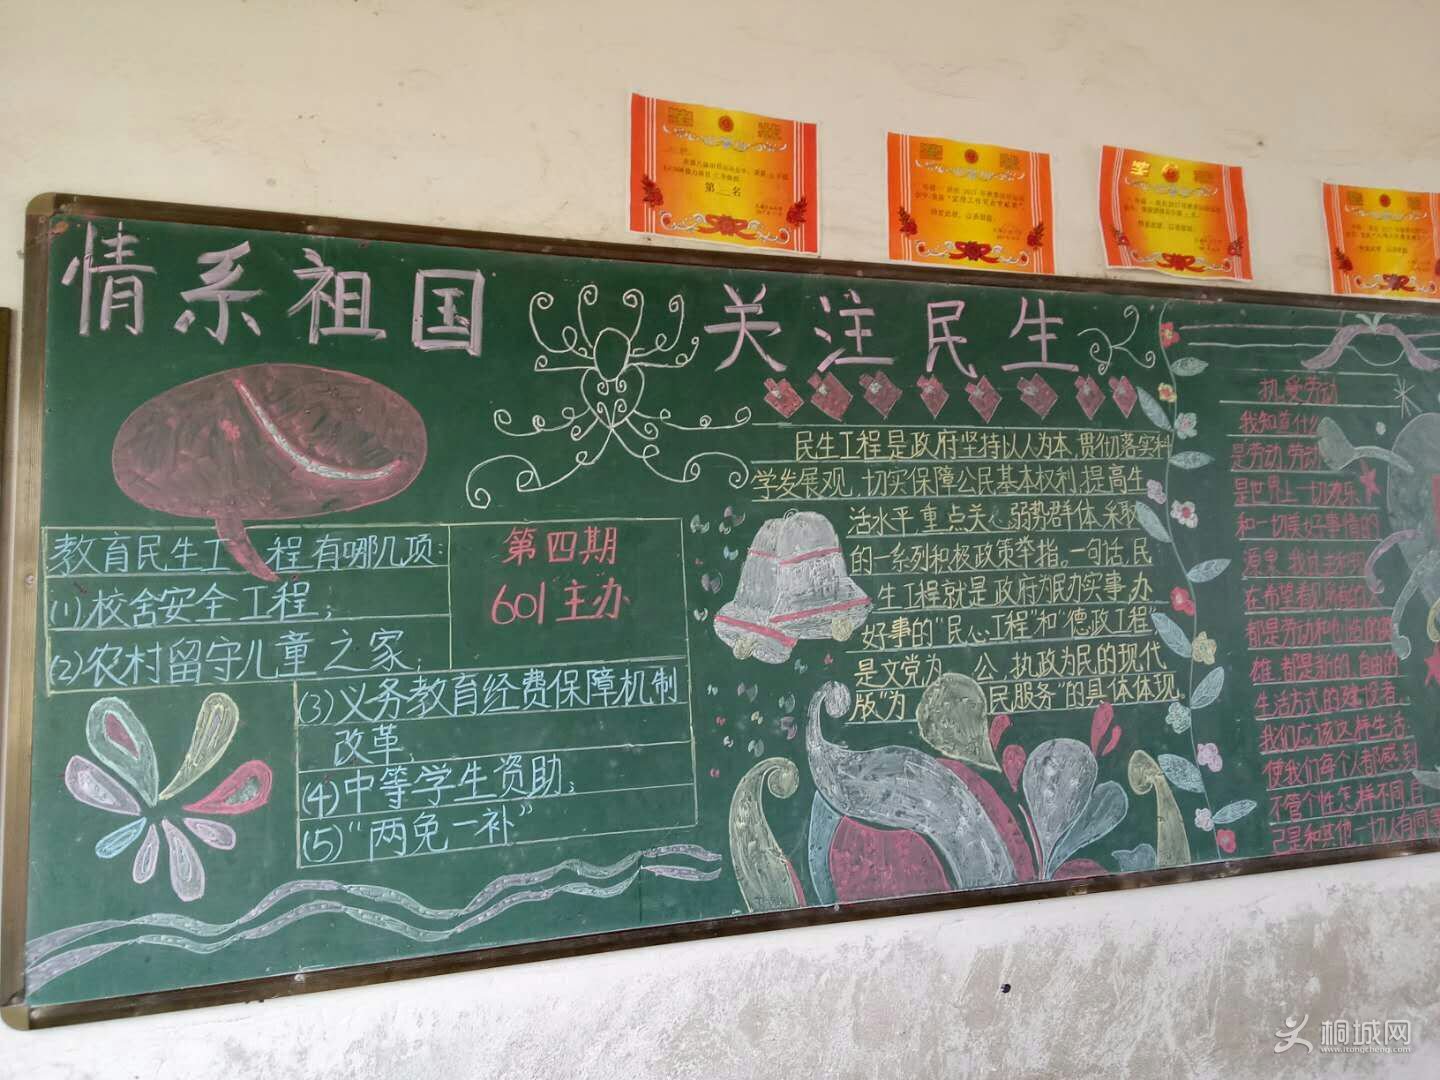 第二名
情系祖国
关注民生
教育民生工程有哪几项:
(1)校舍安全工程;
(2)农村留守儿童之家;
(3)义务教育经费保障机制
改革、
(4)中等学生资助、
(5)“两免一补”
第四期
601主办
民生工程是政府坚持以人为本,贯彻落实科
学发展观,切实保障公民基本权利,提高生
活水平,重点关心弱势群体,采取
的一系列积极政策举措。一句话,民
生工程就是政府为民办实事,办
好事的“民心工程”和“德政工程”,
是文党为公,执政为民的现代
版“为民服务”的具体体现。
热爱劳动
我知道什么
是劳动,劳动
是世界上一切欢乐
和一切美好事情的
源泉,
在希望看见
都是劳动和创造的英
雄,都是新的,自由的
生活方式的建设者。
我们应该这样生活:
使我们每个人都感到
不管个性怎样不同,自
己是和其他一切人有同等
桐城网
www.itongcheng.com